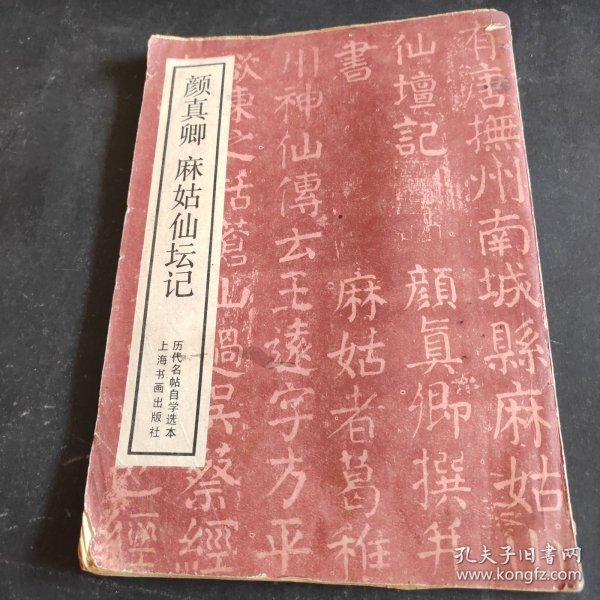 颜真卿 麻姑仙坛记
历代名帖自学选本
上海书画出版社
有唐撫州南城縣麻姑山
仙壇記 顔真卿撰并
書 麻姑者葛稚
川神仙傳云王遠字方平
欲東之括蒼山過吳蔡經
經
孔夫子旧书网
www.kongfz.com